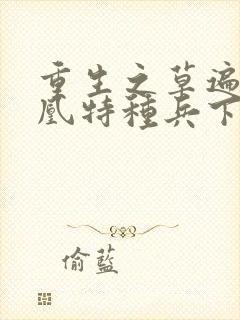 重生之草遍
凰特種兵下
偷藍